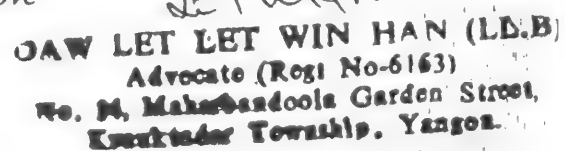 DAW LET LET WIN HAN (LD.B)
Advocate (Regt No-6163)
No. Mahabandoola Garden Street,
Kyauktadar Township. Yangon.